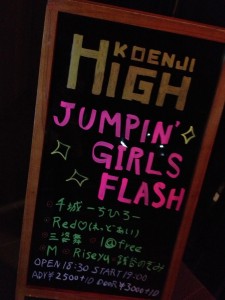 KOENJI
HIGH
JUMPIN'
GIRLS
FLASH
千城 -ちひろ-
三姿舞 1@free
M Riseru
OPEN 18:30 START 19:00
ADV ¥2500+1D DOOR ¥3000+1D